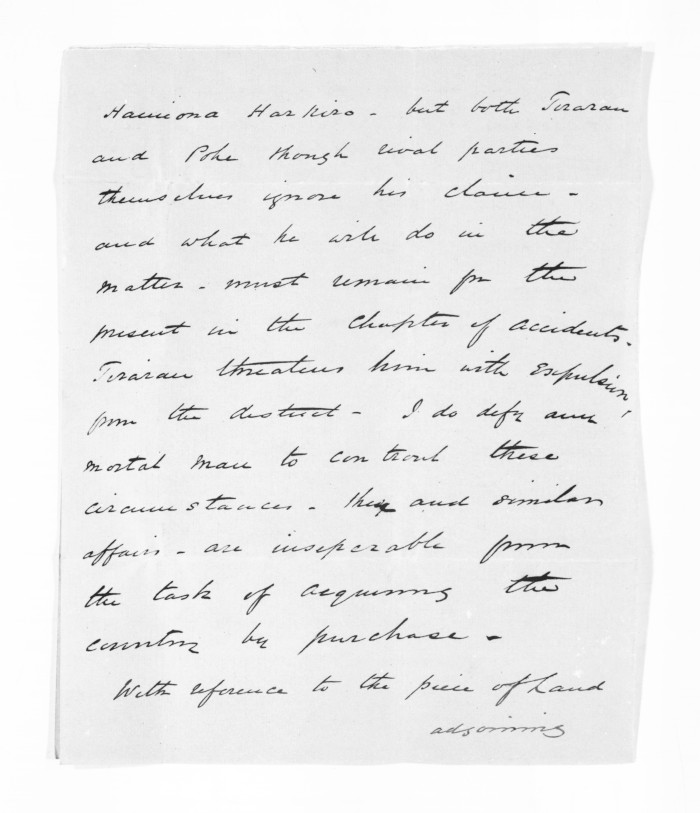 Hamiona Harkiro - but both Tiraran
and Pohe though rival parties
themselves ignore his claim -
and what he will do in the
matter - must remain for the
present in the Chapter of accidents -
Tiraran threatens him with Expulsion,
from the district - I do defy any
mortal man to controul these
circumstances - they and similar
affairs - are inseperable from
the task of acquiring the
country by purchase -
With reference to the piece of Land
adjoining